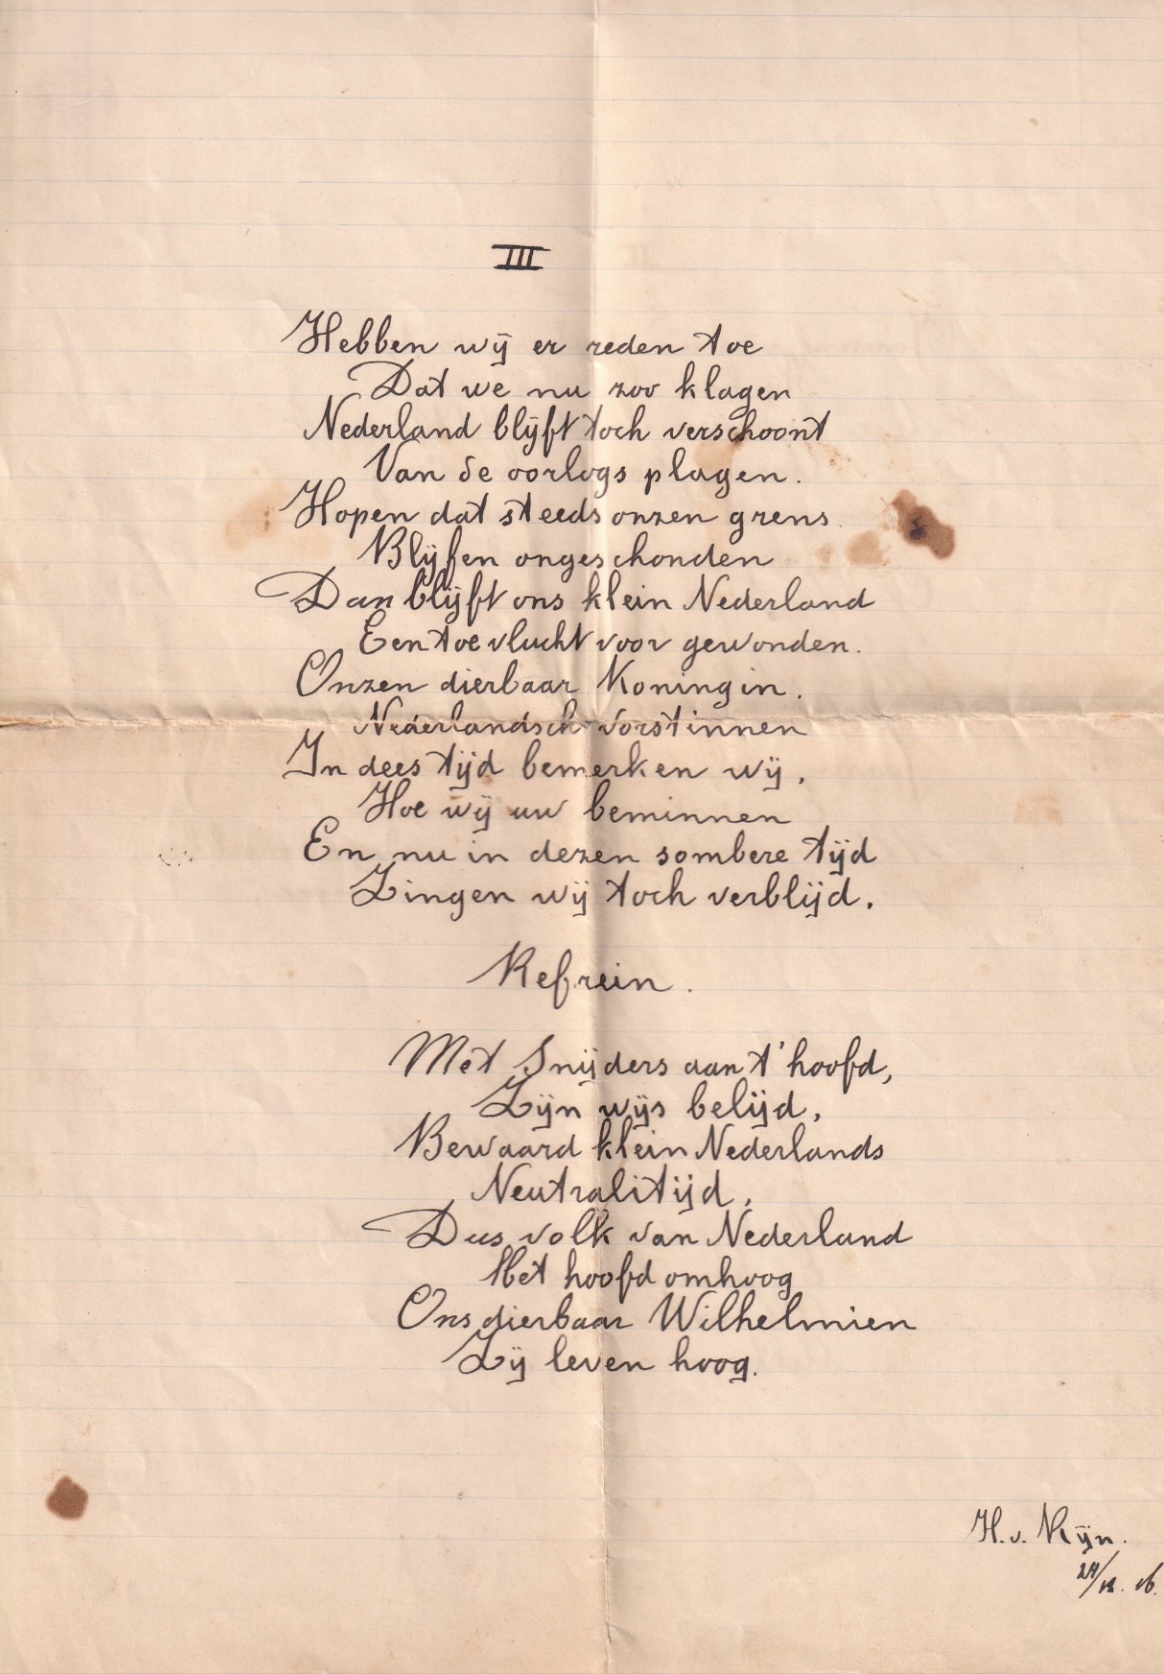 III
Hebben wij er reden toe
Dat we nu zoo klagen
Nederland blijft toch verschoont
Van de oorlogs plagen.
Hopen dat steeds onzen grens
Blijfen ongeschonden
Dan blijft ons klein Nederland
Een toevlucht voor gewonden.
Onzen dierbaar Koningin.
Nederlandsch vorstinnen
In dees tijd bemerken wij.
Hoe wij uw beminnen
En nu in dezen sombere tijd
Zingen wij toch verblijd.
Refrein.
Met Snijders aan t' hoofd,
Zijn wijs belijd,
Bewaard klein Nederlands
Neutralitijd.
Dus volk van Nederland
Het hoofd omhoog
Ons dierbaar Wilhelmien
Zij leven hoog.
H. v. Rijn.
24/12.